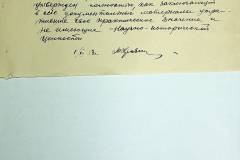 утвержден комиссией, как заключающий
в себе документальные материалы утра-
тившие свое практическое значение и
не имеющие научно-исторической
ценности